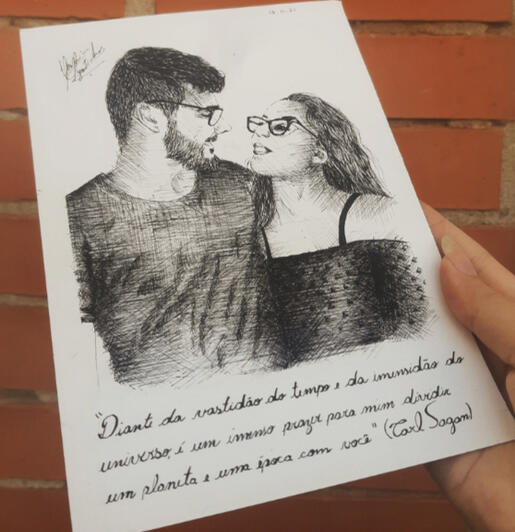 "Diante da vastidão do tempo e da imensidão do
universo, é um imenso prazer para mim dividir
um planeta e uma época com você" (Carl Sagan)